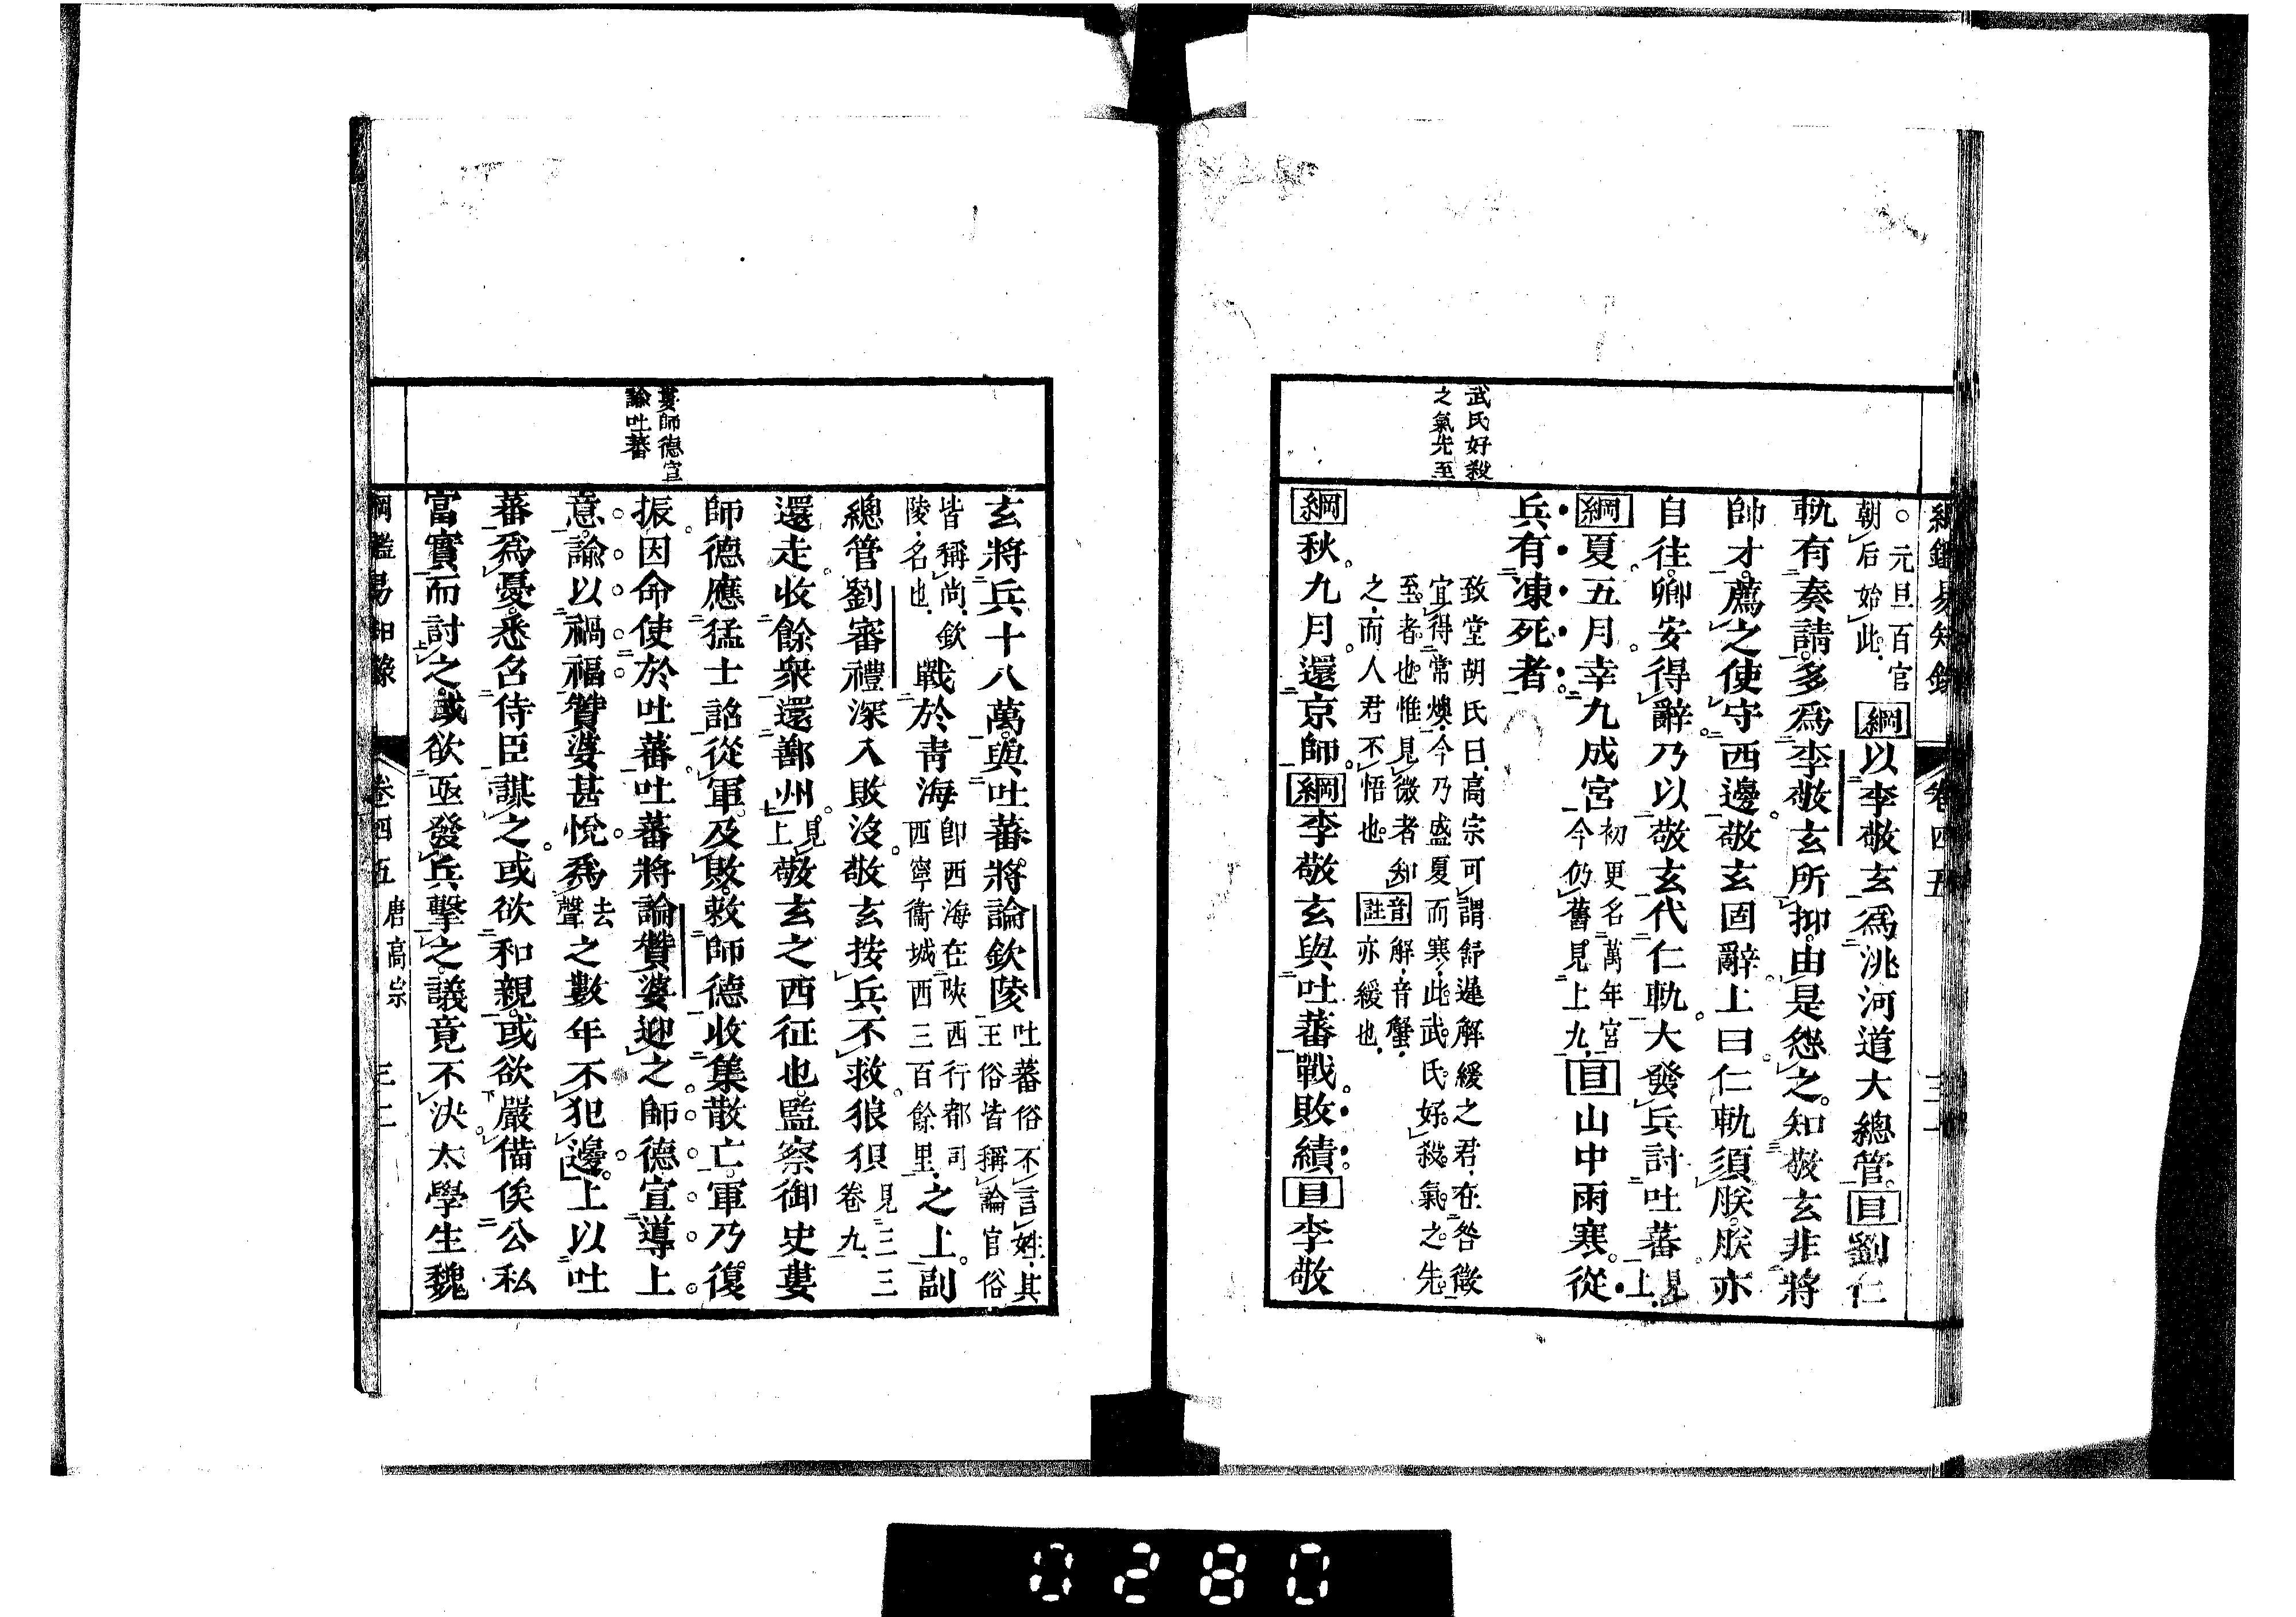 綱鑑易知錄 卷四五 三一
武氏好殺
之氣先至
○元旦百官
朝后始此 綱以李敬玄爲洮河道大總管目劉仁
軌有奏請多爲李敬玄所抑由是怨之知敬玄非將
帥才薦之使守西邊敬玄固辭上曰仁軌須朕朕亦
自往卿安得辭乃以敬玄代仁軌大發兵討吐蕃見上
綱夏五月幸九成宮初更名萬年宮今仍舊見上九目山中雨寒從
兵有凍死者
致堂胡氏曰高宗可謂舒遲解緩之君在咎徵
宜得常燠今乃盛夏而寒此武氏好殺氣之先
至者也惟見微者知
之而人君不悟也 音註解音蟹亦緩也
綱秋九月還京師綱李敬玄與吐蕃戰敗績目李敬
婁師德宣
諭吐蕃
玄將兵十八萬與吐蕃將論欽陵吐蕃俗不言姓其王俗皆稱論官俗
皆稱尚欽陵名也戰於青海卽西海在陝西行都司西寧衞城西三百餘里之上副
總管劉審禮深入敗沒敬玄按兵不救狼狽見三三卷九
還走收餘衆還鄯州見上敬玄之西征也監察御史婁
師德應猛士詔從軍及敗敕師德收集散亡軍乃復
振因命使於吐蕃吐蕃將論贊婆迎之師德宣導上
意諭以禍福贊婆甚悅爲去聲之數年不犯邊上以吐
蕃爲憂悉召侍臣謀之或欲和親或欲嚴備俟公私
富實而討之或欲亟發兵擊之議竟不決太學生魏
綱鑑易知錄 卷四五 唐高宗 三二
0280